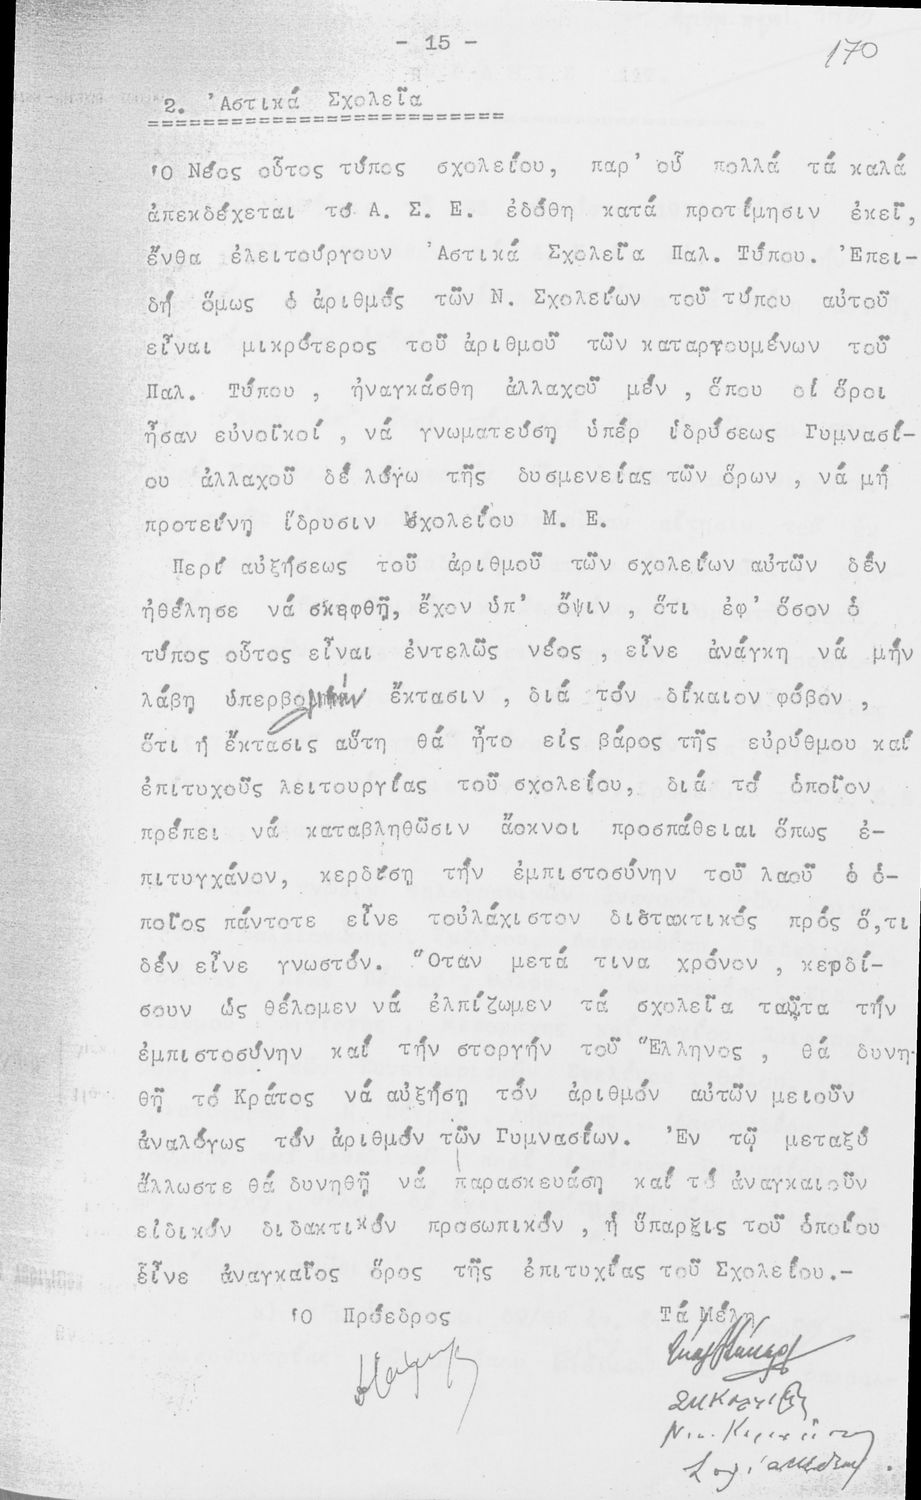 - 15 -
170
2. Ἀστικά Σχολεῖα
Ὁ Νέος οὗτος τύπος σχολείου, παρ' οὗ πολλά τά καλά
ἀπεκδέχεται τό Α. Σ. Ε. ἐδόθη κατά προτίμησιν ἐκεῖ,
ἔνθα ἐλειτούργουν Ἀστικά Σχολεῖα Παλ. Τύπου. Ἐπει-
δή ὅμως ὁ ἀριθμός τῶν Ν. Σχολείων τοῦ τύπου αὐτοῦ
εἶναι μικρότερος τοῦ ἀριθμοῦ τῶν καταργουμένων τοῦ
Παλ. Τύπου , ἠναγκάσθη ἀλλαχοῦ μέν , ὅπου οἱ ὅροι
ἦσαν εὐνοϊκοί , νά γνωματεύση ὑπέρ ἱδρύσεως Γυμνασί-
ου ἀλλαχοῦ δέ λόγω τῆς δυσμενείας τῶν ὅρων , νά μή
προτείνη ἵδρυσιν Σχολείου Μ. Ε.
Περί αὐξήσεως τοῦ ἀριθμοῦ τῶν σχολείων αὐτῶν δέν
ἠθέλησε νά σκεφθῆ, ἔχον ὑπ' ὄψιν , ὅτι ἐφ' ὅσον ὁ
τύπος οὗτος εἶναι ἐντελῶς νέος , εἶνε ἀνάγκη νά μήν
λάβη ὑπερβολικήν ἔκτασιν , διά τόν δίκαιον φόβον ,
ὅτι ἡ ἔκτασις αὕτη θά ἦτο εἰς βάρος τῆς εὐρύθμου καί
ἐπιτυχοῦς λειτουργίας τοῦ σχολείου, διά τό ὁποῖον
πρέπει νά καταβληθῶσιν ἄοκνοι προσπάθειαι ὅπως ἐ-
πιτυγχάνον, κερδίση τήν ἐμπιστοσύνην τοῦ λαοῦ ὁ ὁ-
ποῖος πάντοτε εἶνε τοὐλάχιστον διστακτικός πρός ὅ,τι
δέν εἶνε γνωστόν. Ὅταν μετά τινα χρόνον , κερδί-
σουν ὡς θέλομεν νά ἐλπίζωμεν τά σχολεῖα ταῦτα τήν
ἐμπιστοσύνην καί τήν στοργήν τοῦ Ἕλληνος , θά δυνη-
θῆ τό Κράτος νά αὐξήση τόν ἀριθμόν αὐτῶν μειοῦν
ἀναλόγως τόν ἀριθμόν τῶν Γυμνασίων. Ἐν τῷ μεταξύ
ἄλλωστε θά δυνηθῆ νά παρασκευάση καί τό ἀναγκαιοῦν
εἰδικόν διδακτικόν προσωπικόν , ἡ ὕπαρξις τοῦ ὁποίου
εἶνε ἀναγκαῖος ὅρος τῆς ἐπιτυχίας τοῦ Σχολείου.-
Ὁ Πρόεδρος Τά Μέλη